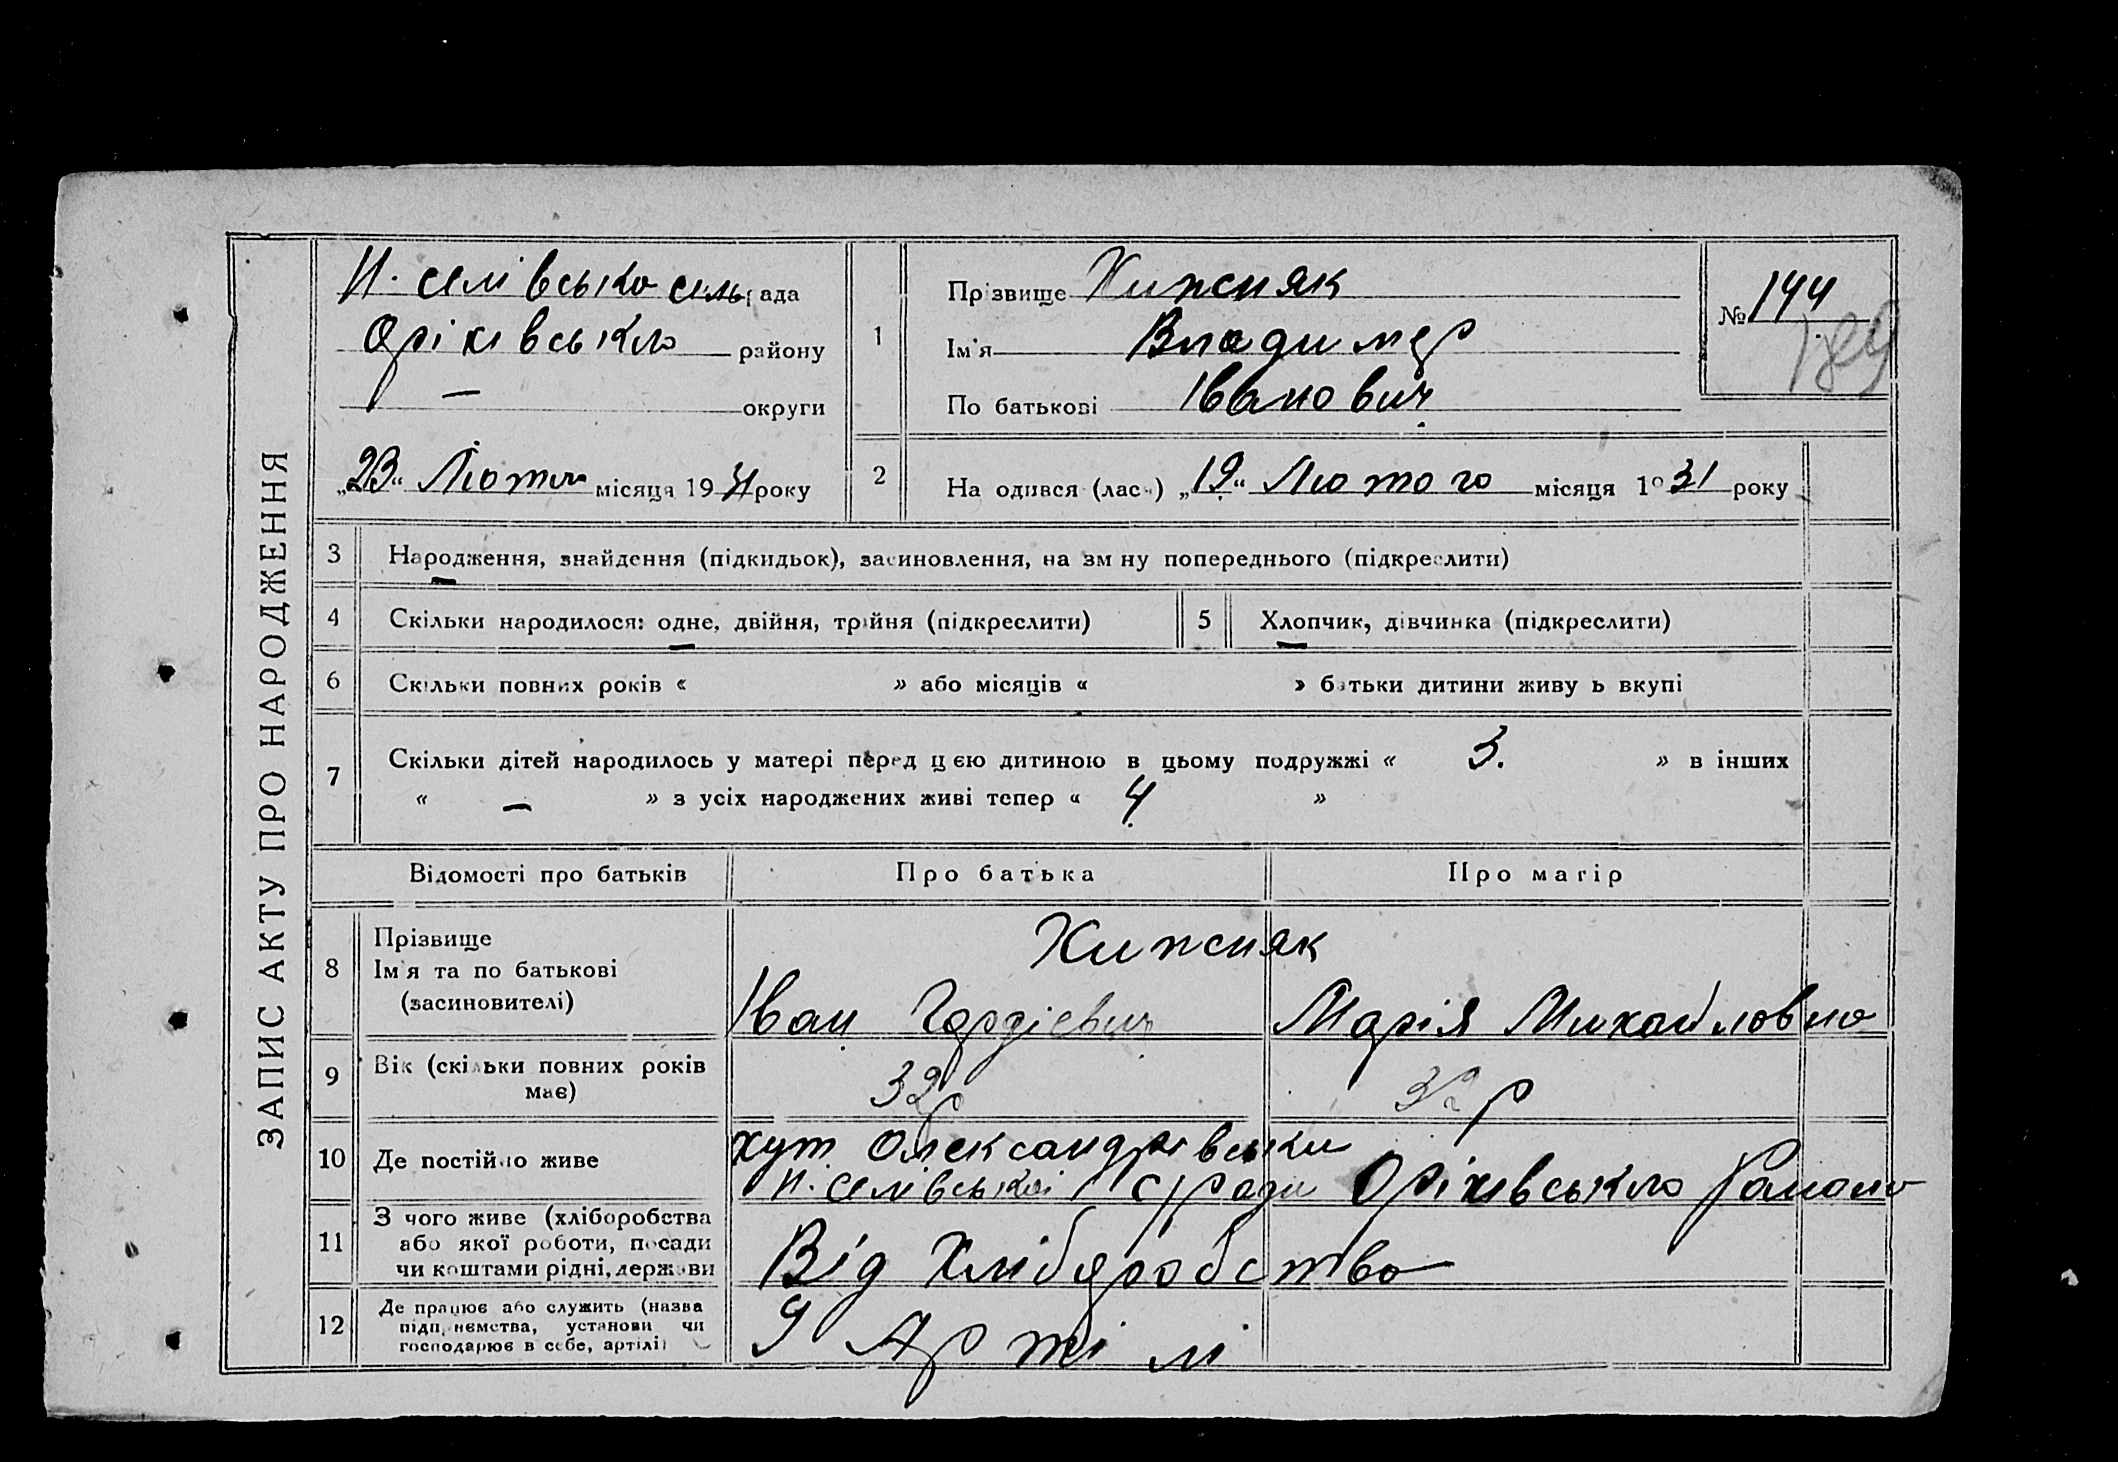 ЗАПИС АКТУ ПРО НАРОДЖЕННЯ
Н. Селівсько сельрада
Оріхівського району
— округи
„23“ Лютого місяця 1931 року
1 Прізвище Хижняк
Ім'я Владимер
По батькові Іванович
№ 144
2 На одився (лась) „19“ Лютого місяця 1931 року
3 Народження, знайдення (підкидьок), засиновлення, на зм ну попереднього (підкреслити)
4 Скільки народилося: одне, двійня, трійня (підкреслити)
5 Хлопчик, дівчинка (підкреслити)
6 Скільки повних років « » або місяців « » батьки дитини живу ь вкупі
7 Скільки дітей народилось у матері перед цією дитиною в цьому подружжі « 3. » в інших
« — » з усіх народжених живі тепер « 4 »
Відомості про батьків Про батька Про матір
8 Прізвище
Ім'я та по батькові
(засиновителі)
Хижняк
Іван Гордієвич Марія Михайловна
9 Вік (скільки повних років
має)
32 р 32 р
10 Де постійно живе
хут Олександрівськи
Н. Селівської с/ради Оріхівського
11 З чого живе (хліборобства
або якої роботи, посади
чи коштами рідні, держави
Від Хліборобство
12 Де працює або служить (назва
підприємства, установи чи
господарює в себе, артілі)
У Артілі